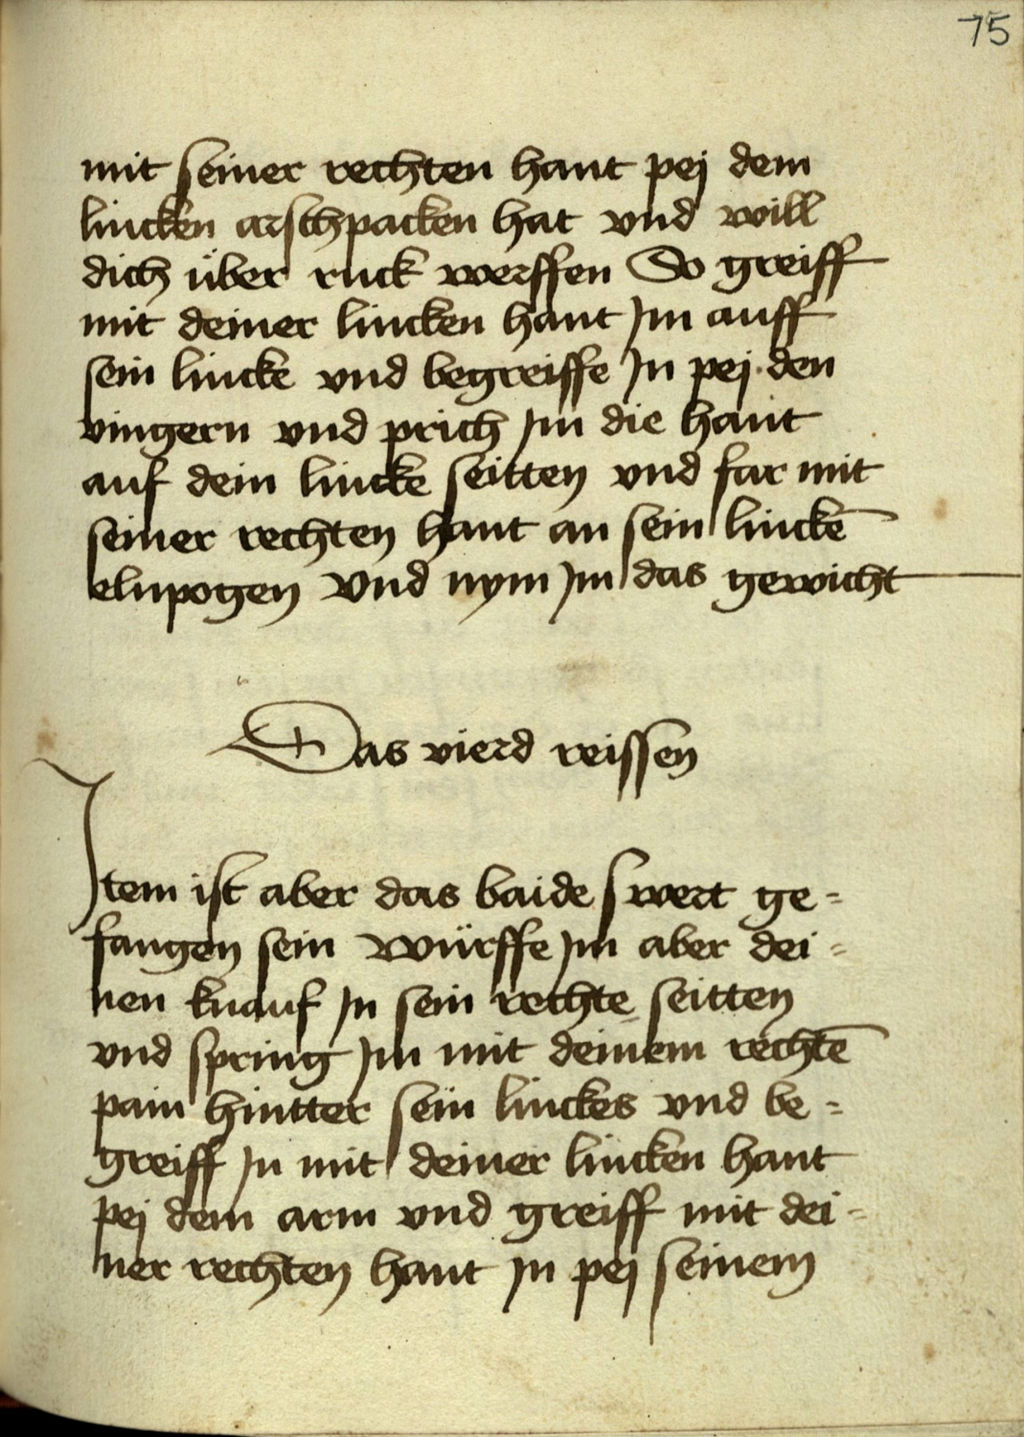 75
mit seiner rechten hant pej dem
lincken arschpacken hat vnd will
dich über ruck werffen So greiff
mit deiner lincken hant Jm auff
sein lincke vnd begreiffe Jn pej den
vingern vnd prich Jm die hant
auf dein lincke seitten vnd far mit
seiner rechten hant an sein linckē
elnpogen Vnd nym Jm das gewicht
Das vierd reissen
Jtem ist aber das baide swert ge=
fangen sein würffe Jm aber dei=
nen knauf Jn sein rechte seitten
vnd spring Jm mit deinem rechtē
pain hintter sein linckes vnd be=
greiff Jn mit deiner lincken hant
pej dem arm vnd greiff mit dei=
ner rechten hant Jn pej seinem